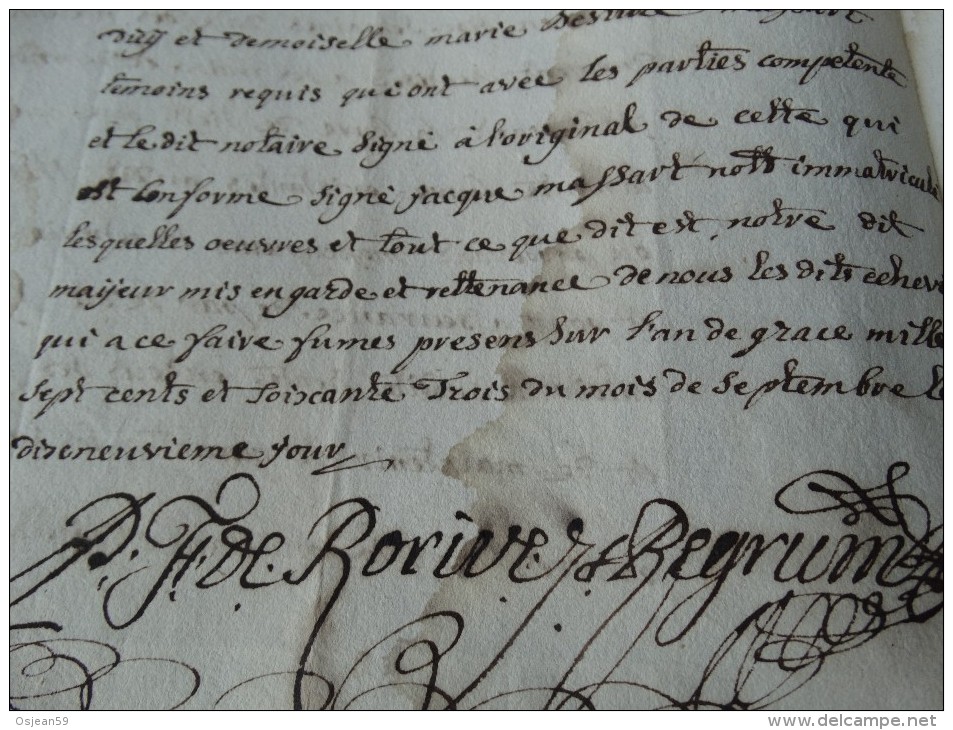 duÿ et demoiselle marie
temoins requis qui ont avec les parties competente
et le dit notaire signé à l'original de cette qui
est conforme signé jacque massart nottt immatricul
lesquelles oeuvres et tout ce que dit est, notre dit
maÿeur mis en garde et rettenance de nous les dits echevi
qui a ce faire fumes presens sur l'an de grace mille
sept cents et soixcante Trois du mois de septembre le
dixneuvieme jour
P: F: de: Rorive
Osjean59
http://www.delcampe.net